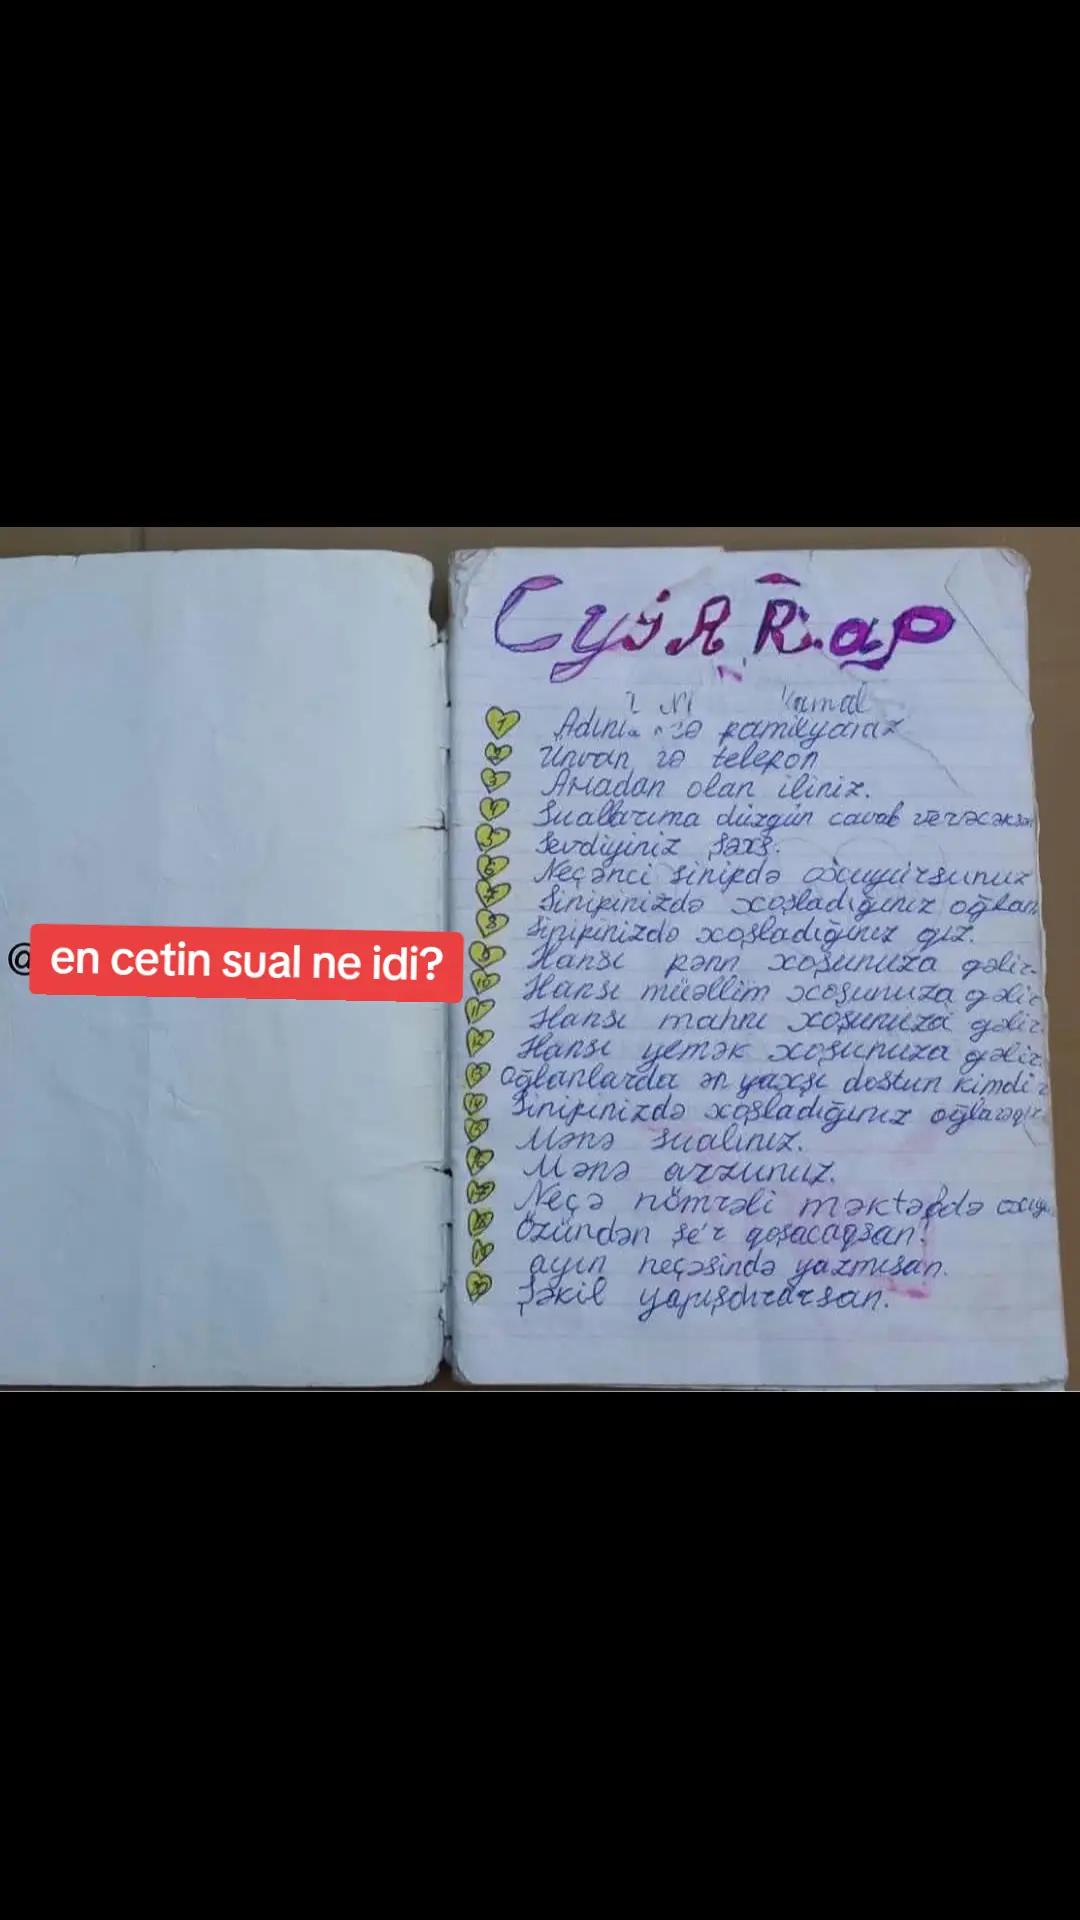 СуаллаR
Kamal
1 Adınız və familyanız
2 Ünvan və telefon
3 Anadan olan iliniz.
4 Suallarıma düzgün cavab verəcəksən
5 Sevdiyiniz şəxs.
6 Neçənci sinifdə oxuyursunuz
7 Sinifinizdə xoşladığınız oğlan
8 Sinifinizdə xoşladığınız qız.
9 Hansı fənn xoşunuza gəlir.
10 Hansı müəllim xoşunuza gəlir
11 Hansı mahnı xoşunuza gəlir.
12 Hansı yemək xoşunuza gəlir.
13 Oğlanlarda ən yaxşı dostun kimdir
14 Sinifinizdə xoşladığınız
15 Mənə sualınız.
16 Mənə arzunuz.
17 Neçə nömrəli məktəbdə
18 Özündən şe'r qoşacaqsan!
19 ayın neçəsində yazmısan.
20 Şəkil yapışdırarsan.
@
en cetin sual ne idi?